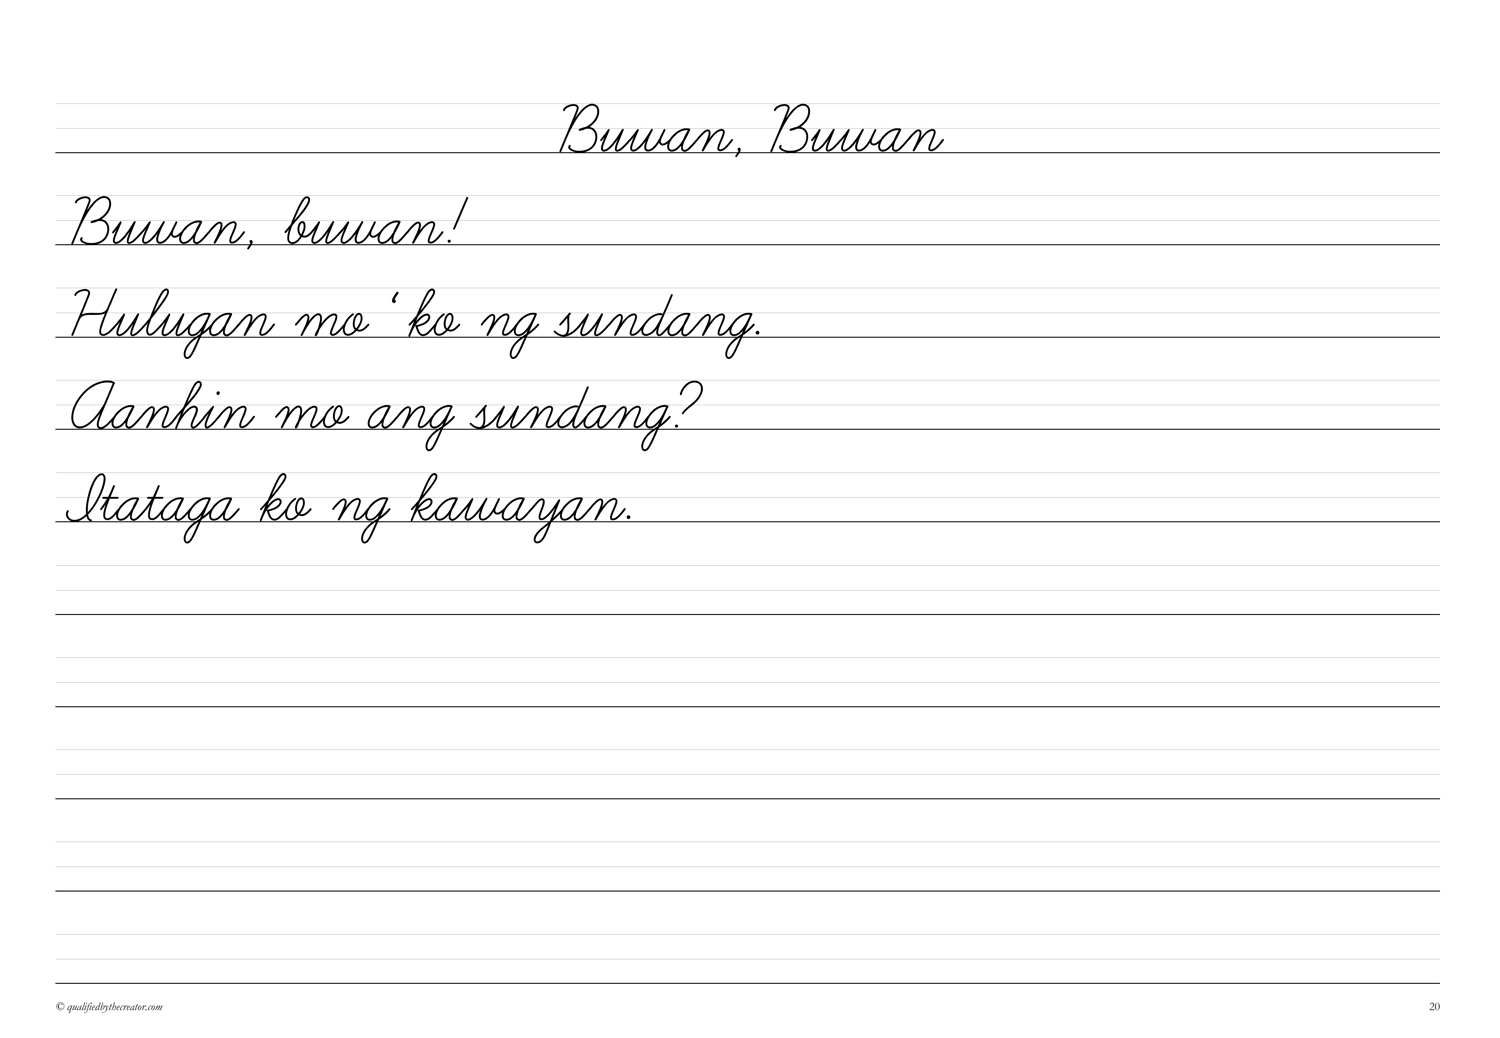 Buwan, Buwan
Buwan, buwan!
Hulugan mo ‘ ko ng sundang.
Aanhin mo ang sundang?
Itataga ko ng kawayan.
© qualifiedbythecreator.com
20